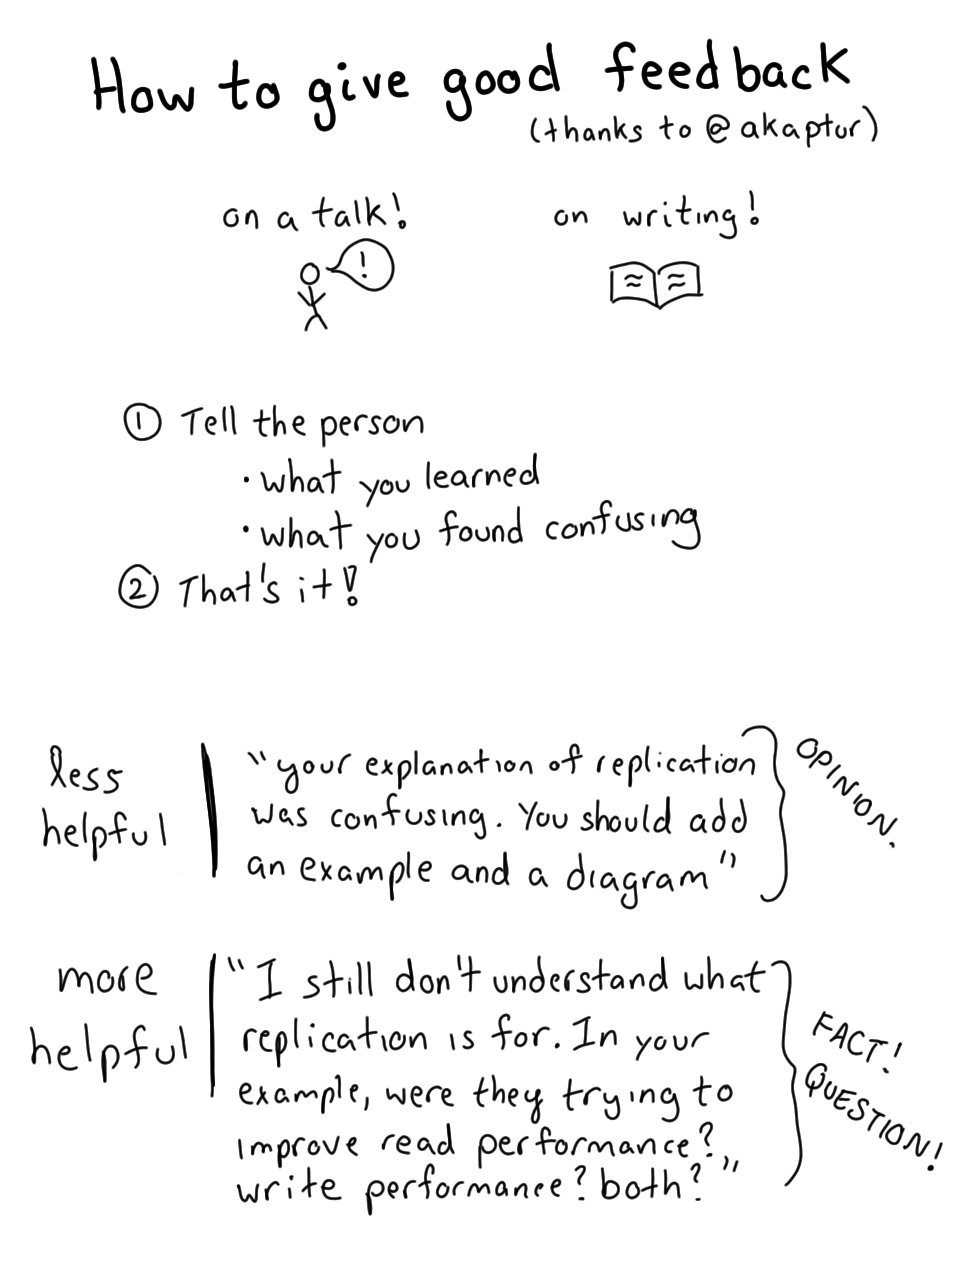 How to give good feedback
(thanks to @akaptur)
on a talk!
on writing!
!
① Tell the person
• what you learned
• what you found confusing
② That's it!
less
helpful
"your explanation of replication
was confusing. You should add
an example and a diagram"
OPINION.
more
helpful
"I still don't understand what
replication is for. In your
example, were they trying to
improve read performance?
write performance? both?"
FACT!
QUESTION!